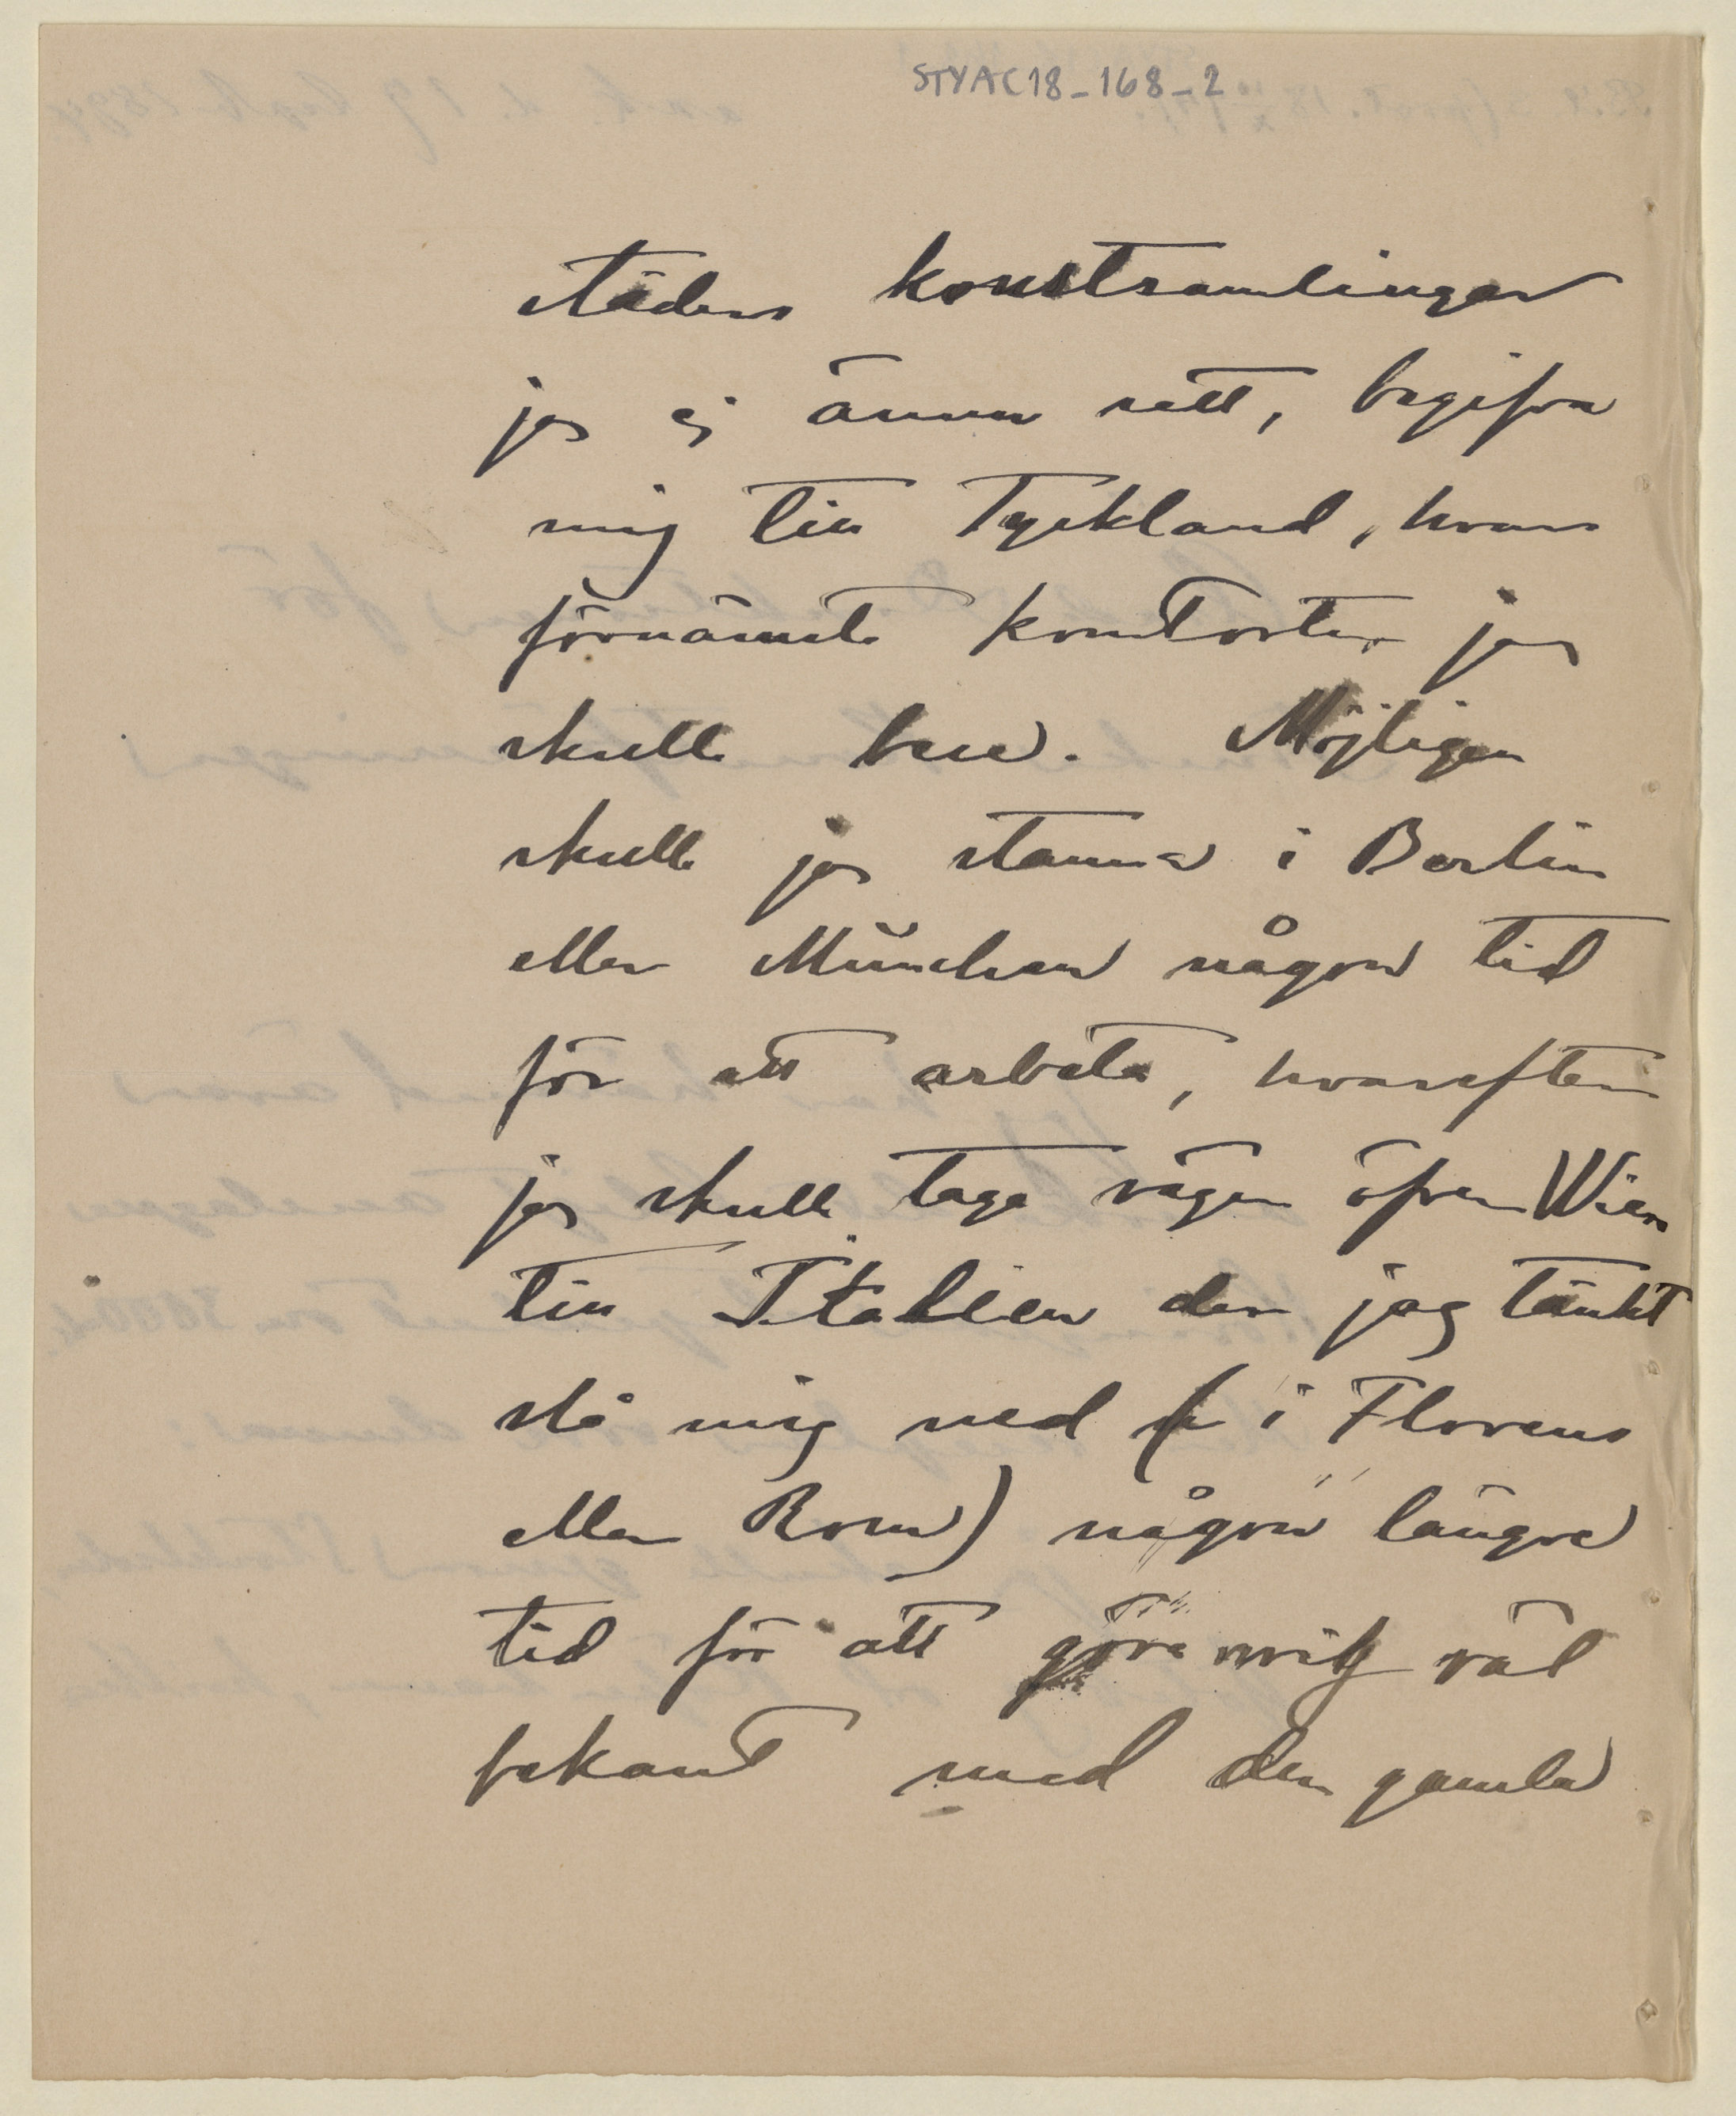 STYAC18-168-2
städers konstsamlingar
jag ej ännu sett, begifva
mig till Tyskland, hvars
förnämsta konstorter jag
skulle bese. Möjligen
skulle jag stanna i Berlin
eller München någon tid
för att arbeta, hvarefter
jag skulle taga vägen öfver Wien
till Italien der jag tänkt
slå mig ned ( i Florens
eller Rom) någon längre
tid för att göra mig väl
bekant med den gamla